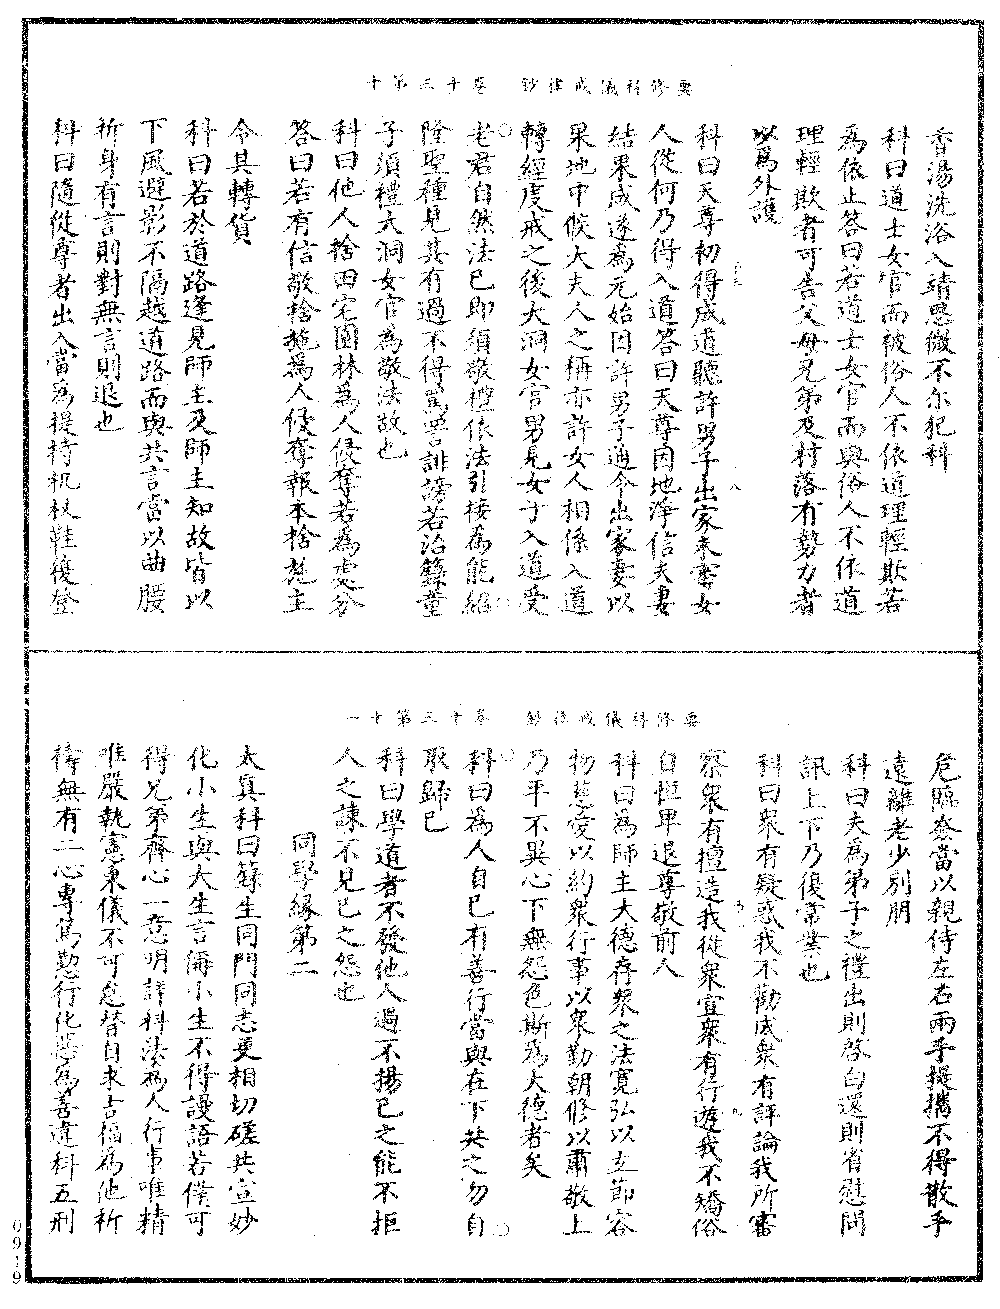 要修科儀戒律鈔　卷十三第十
香湯洗浴入靖思微不尔犯科
科曰道士女官而被俗人不依道理輕欺若
為依止答曰若道士女官而與俗人不依道
理輕欺者可告父母兄弟及村落有勢力者
以為外護
科曰天尊初得成道聽許男子出家未審女
人從何乃得入道答曰天尊因地淨信夫妻
結果成遂為元始因許男子通令出家妻以
果地中候大夫人之稱亦許女人相係入道
轉經度戒之後大洞女官男見女于入道受
老君自然法已即須敬禮依法引接為能紹
隆聖種見其有過不得罵詈誹謗若治籙童
子須禮大洞女官為敬法故也
科曰他人捨田宅園林為人侵奪若為處分
答曰若有信敬捨施為人侵奪報本捨施主
令其轉貨
科曰若於道路逢見師主及師主知故皆以
下風避影不隔越道路而與共言當以曲腰
折身有言則對無言則退也
科曰隨從尊者出入當為提持机杖鞋履登
要修科儀戒律鈔　卷十三第十一
危臨嶮當以親侍左右兩手提攜不得散手
遠離老少別朋
科曰夫為弟子之禮出則啓白還則省慰問
訊上下乃復常業也
科曰眾有疑惑我不勸成眾有評論我所審
察眾有擅造我從眾宣眾有行遊我不矯俗
自恒卑退尊敬前人
科曰為師主大德存眾之法寬弘以立節容
物慈愛以約眾行事以眾勤朝修以肅敬上
乃平不異心下無怨色斯為大德者矣
科曰為人自己有善行當與在下共之勿自
取歸己
科曰學道者不發他人過不揚己之能不拒
人之諫不見己之怨也
同學緣第二
太真科曰籙生同門同志更相切磋共宣妙
化小生與大生言備小生不得謾語若僕可
得兄弟齊心一意明詳科法為人行事唯精
唯嚴執憲秉儀不可怠替自求吉福為他祈
禱無有二心專篤懃行化惡為善違科五刑
0919